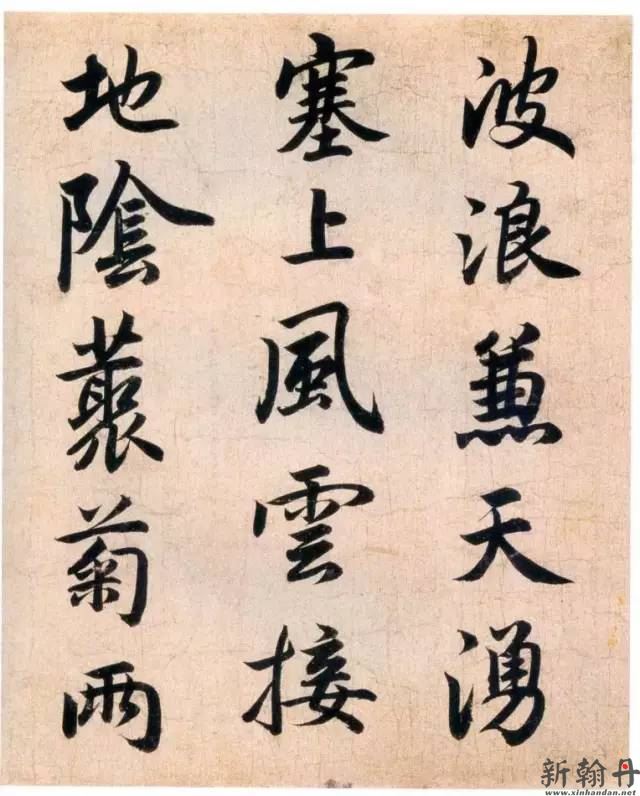 波浪蒹天湧
塞上風雲接
地陰叢菊兩
新翰丹
www.xinhandan.net